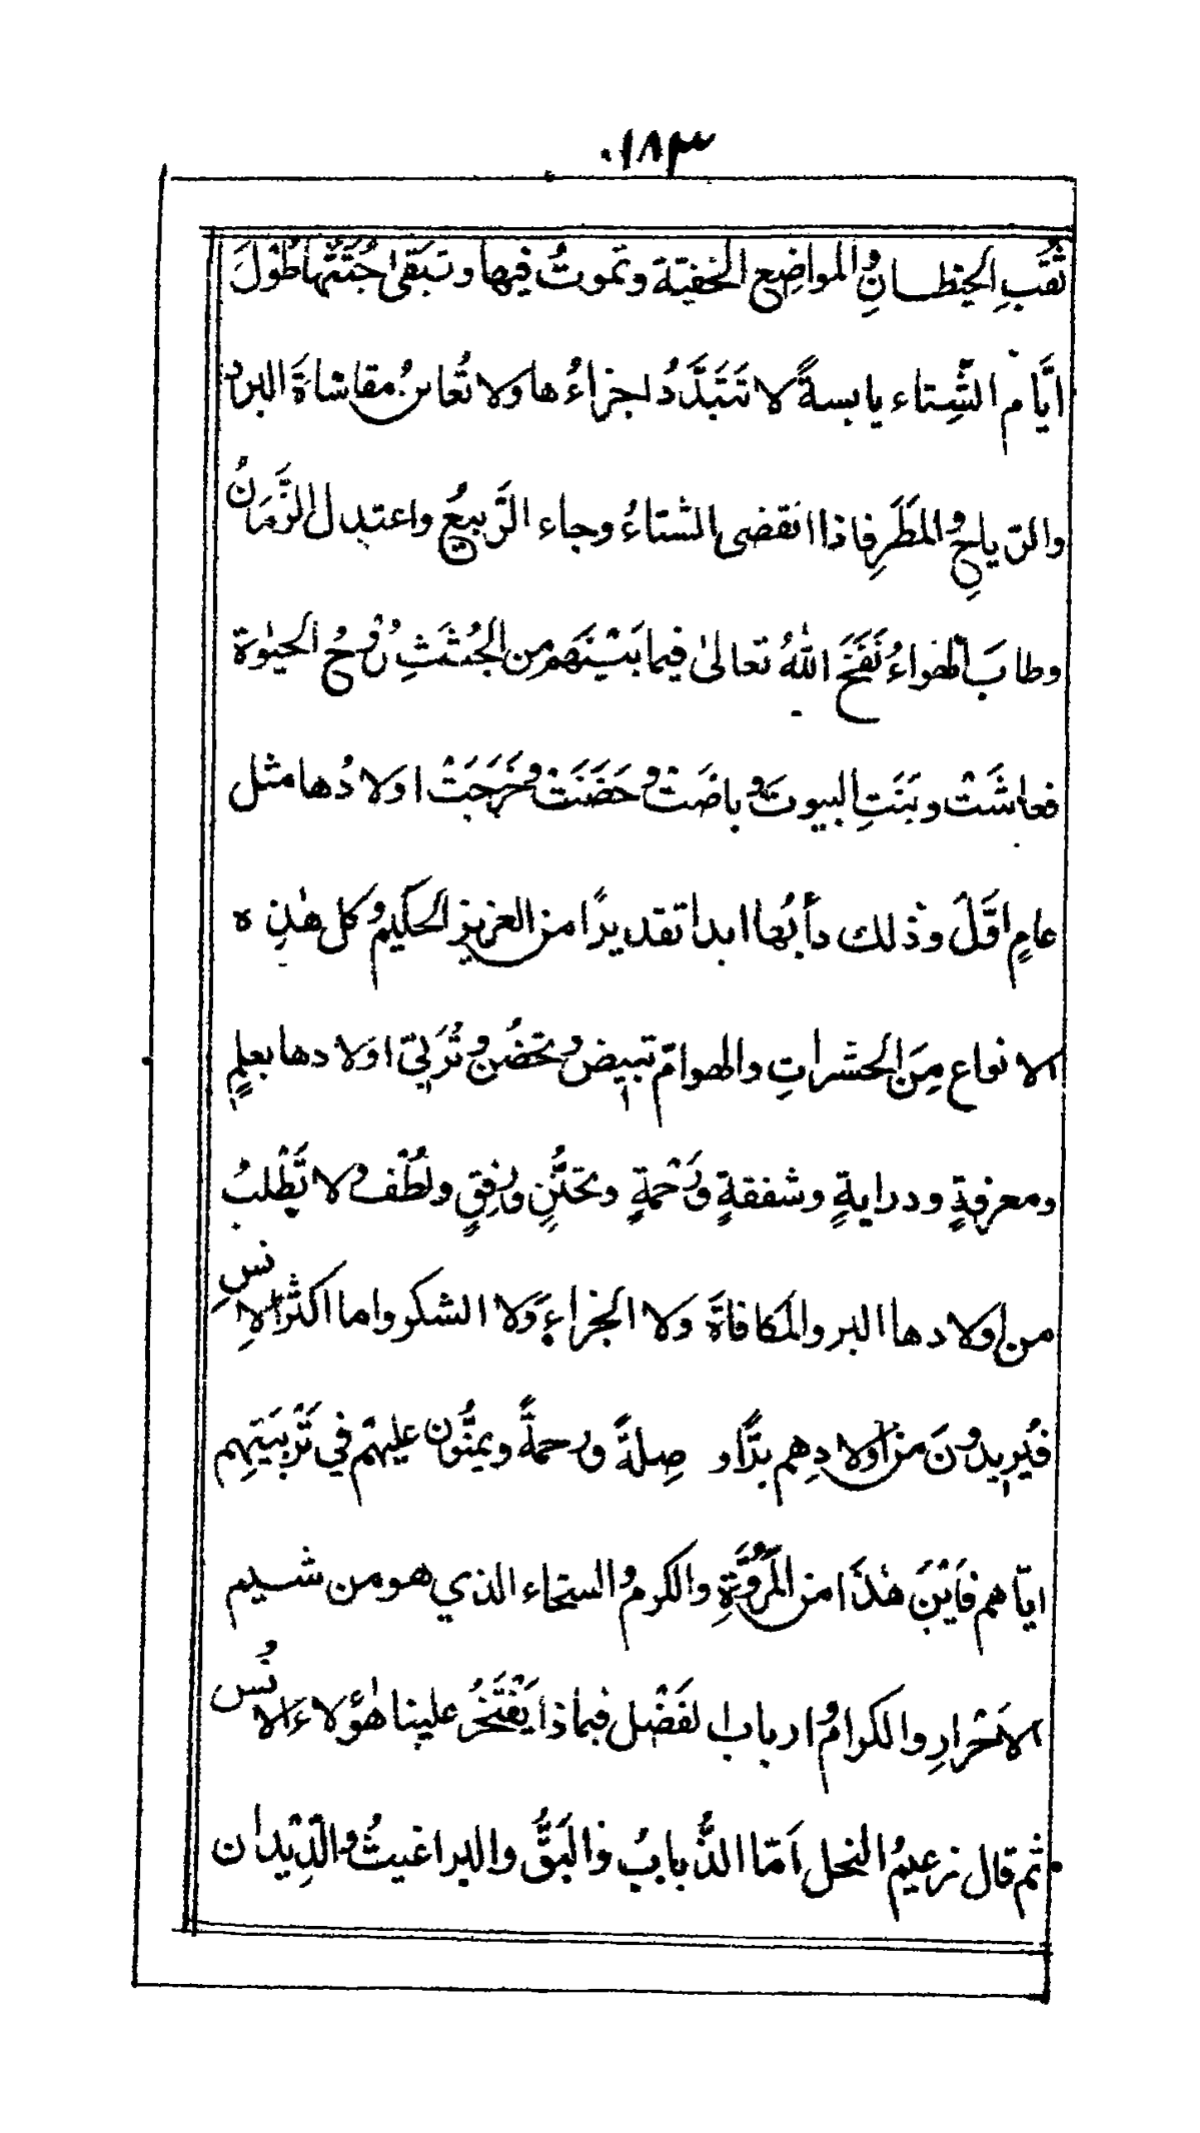 ١٨٣
ثُقَبِ الحِيْطَانِ وَالمواضِع الخفيّة وتموتُ فيها وتبَقىٰ جُثَتُها طُوْلَ
ايَّام الشِّتاء يابسةً لا تَتَبَدَّدُ اجزاءُها ولا تُعاين مقاساةَ البرد
والرّياحِ وَالمَطَرِ فاذا انقضى الشتاءُ وجاء الرَّبيعُ واعتدل الزَّمَانُ
وطابَ الهواءُ نَفَخَ اللهُ تعالىٰ فيما بَيْنَهُم من الجُثَثِ رُوْحُ الحيٰوة
فعاشَتْ وبَنَتِ البيوتَ وباضَتْ وحَضَنَتْ وخَرَجَتْ اولادُها مثل
عامٍ اوَّلَ وذٰلك دأبُها ابدا تقديرًا من العزيز الحكيم وكل هٰذِه
الانواع مِنَ الحشراتِ والهوامّ تبيض وتحضُن وتُرَبّي اولادها بعلمٍ
ومعرفةٍ ودرايةٍ وشفقةٍ ورَحْمةٍ وتحنُّنٍ ورِفِقٍ ولُطْفٍ ولا تَطْلبُ
من اولادها البر والمكافاةَ ولا الجزاءِ وَلا الشكر واما اكثر الاِنسِ
فيُريدُونَ من اولادِهم برًّا و صِلةً ورحمةً ويمنُّون عليهْم في تَرْبِيَتِهم
ايّاهم فاَيْنَ هٰذَا من المُرُوَّةِ والكرم والسخاء الذي هو من شيم
الاَحْرارِ والكرام وارباب الفَضْل فبماذا يَفْتَخُر علينا هٰؤلاءِ الانُسُ
ثم قال زعيمُ النحل اَمّا الذُّبابُ وَالبَقُّ والبراغيثُ وَالدِّيْدان